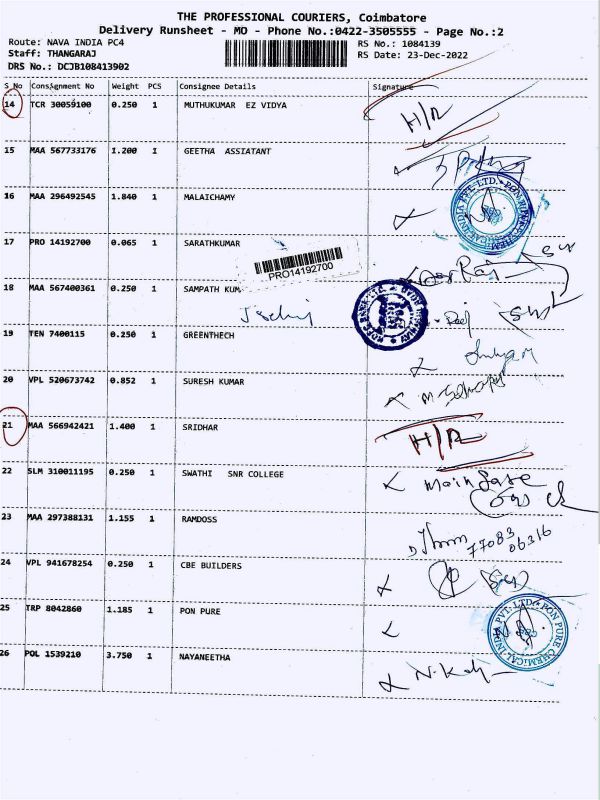 THE PROFESSIONAL COURIERS, Coimbatore
Delivery Runsheet - MO - Phone No.:0422-3505555 - Page No.:2
Route: NAVA INDIA PC4 RS No.: 1084139
Staff: THANGARAJ RS Date: 23-Dec-2022
DRS No.: DCJB108413902
S No Consignment No Weight PCS Consignee Details Signature
14 TCR 30059100 0.250 1 MUTHUKUMAR EZ VIDYA H/R
15 MAA 567733176 1.200 1 GEETHA ASSIATANT
16 MAA 296492545 1.840 1 MALAICHAMY
17 PRO 14192700 0.065 1 SARATHKUMAR
PRO14192700
18 MAA 567400361 0.250 1 SAMPATH KUM
19 TEN 7400115 0.250 1 GREENTHECH
20 VPL 520673742 0.852 1 SURESH KUMAR
21 MAA 566942421 1.400 1 SRIDHAR H/R
22 SLM 310011195 0.250 1 SWATHI SNR COLLEGE main gate
23 MAA 297388131 1.155 1 RAMDOSS 77083 06316
24 VPL 941678254 0.250 1 CBE BUILDERS
25 TRP 8042860 1.185 1 PON PURE
PON PURE CHEMICAL INDIA PVT. LTD.
26 POL 1539210 3.750 1 NAYANEETHA